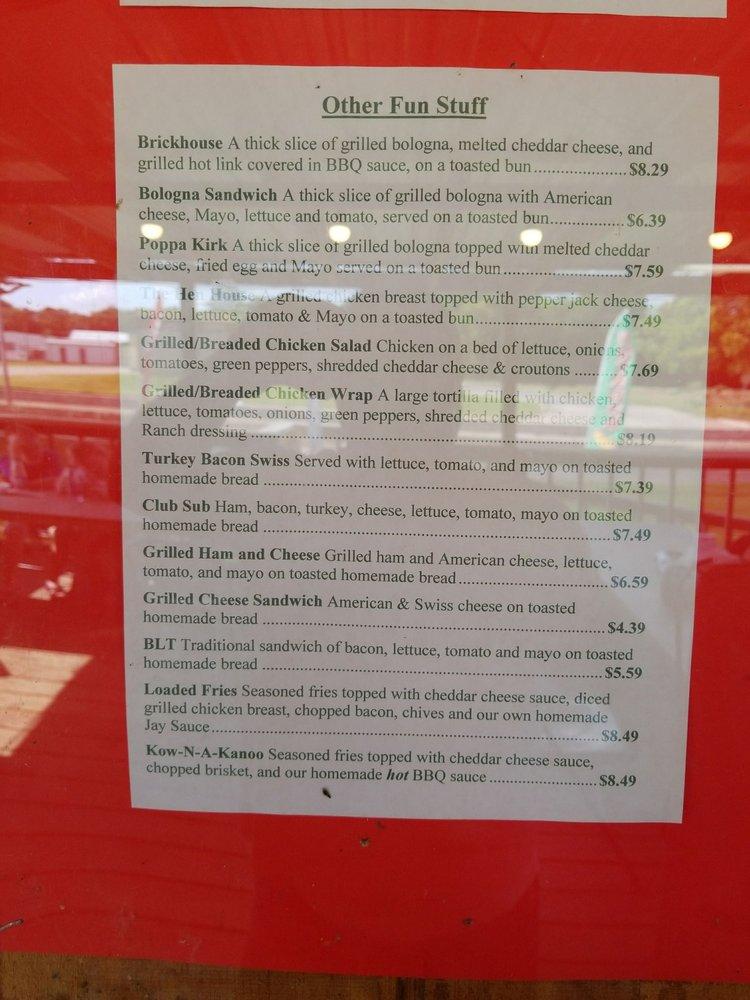 Other Fun Stuff
Brickhouse A thick slice of grilled bologna, melted cheddar cheese, and
grilled hot link covered in BBQ sauce, on a toasted bun.....................$8.29
Bologna Sandwich A thick slice of grilled bologna with American
cheese, Mayo, lettuce and tomato, served on a toasted bun.................$6.39
Poppa Kirk A thick slice of grilled bologna topped with melted cheddar
cheese, fried egg and Mayo served on a toasted bun...........................$7.59
The Hen House A grilled chicken breast topped with pepper jack cheese,
bacon, lettuce, tomato & Mayo on a toasted bun.................................$7.49
Grilled/Breaded Chicken Salad Chicken on a bed of lettuce, onions,
tomatoes, green peppers, shredded cheddar cheese & croutons ..........$7.69
Grilled/Breaded Chicken Wrap A large tortilla filled with chicken,
lettuce, tomatoes, onions, green peppers, shredded cheddar cheese and
Ranch dressing ....................................................................................$8.19
Turkey Bacon Swiss Served with lettuce, tomato, and mayo on toasted
homemade bread ................................................................................$7.39
Club Sub Ham, bacon, turkey, cheese, lettuce, tomato, mayo on toasted
homemade bread ................................................................................$7.49
Grilled Ham and Cheese Grilled ham and American cheese, lettuce,
tomato, and mayo on toasted homemade bread...................................$6.59
Grilled Cheese Sandwich American & Swiss cheese on toasted
homemade bread ................................................................................$4.39
BLT Traditional sandwich of bacon, lettuce, tomato and mayo on toasted
homemade bread ................................................................................$5.59
Loaded Fries Seasoned fries topped with cheddar cheese sauce, diced
grilled chicken breast, chopped bacon, chives and our own homemade
Jay Sauce............................................................................................$8.49
Kow-N-A-Kanoo Seasoned fries topped with cheddar cheese sauce,
chopped brisket, and our homemade hot BBQ sauce .........................$8.49